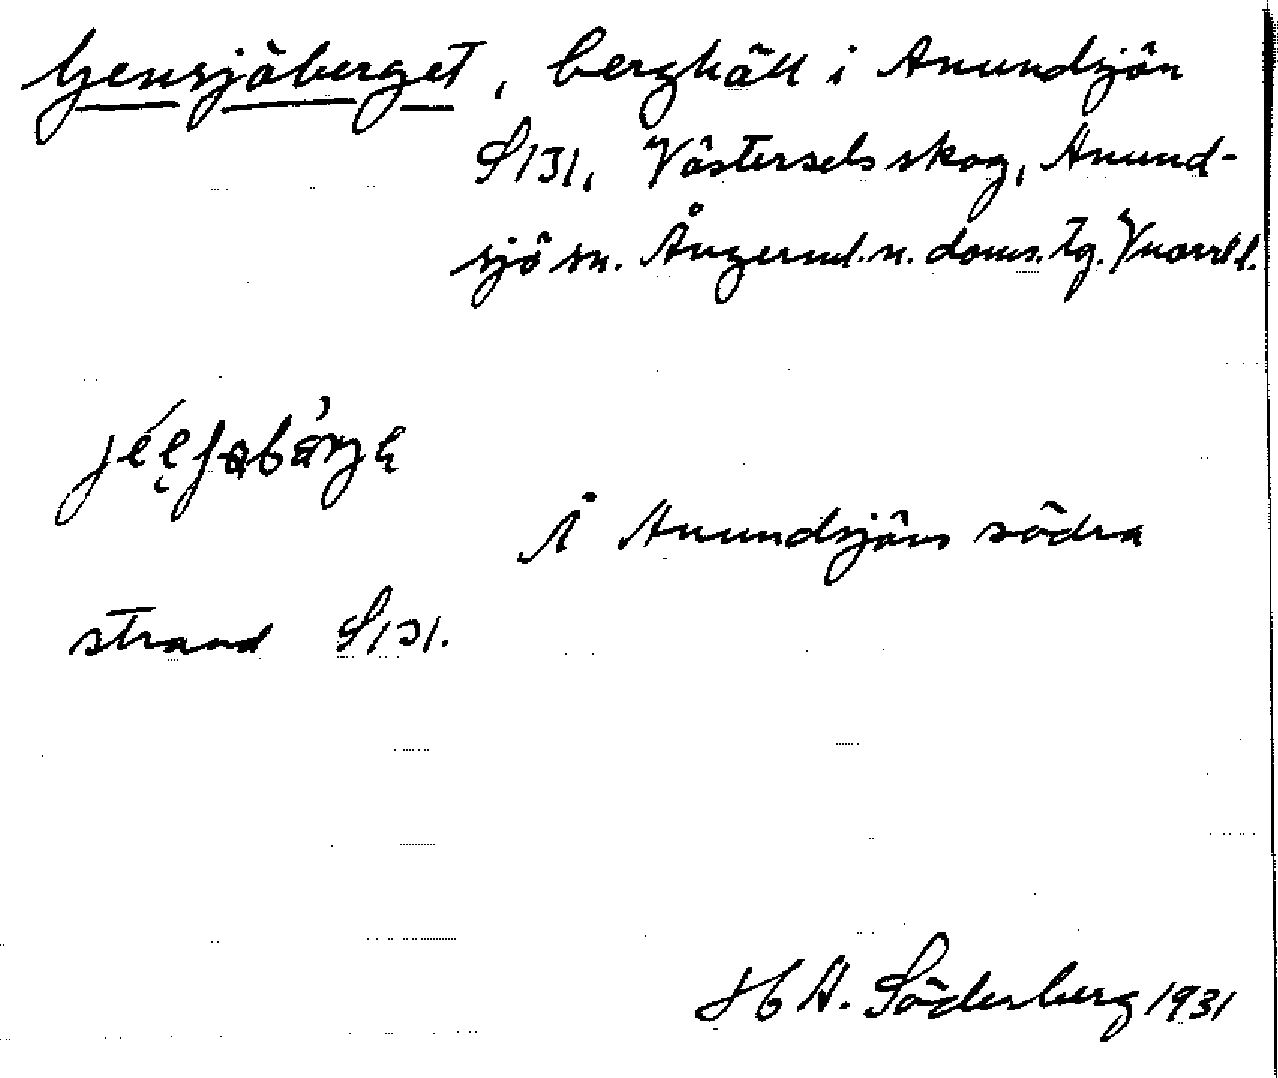 Gensjöberget, berghäll i Anundsjön
S131, Västersels skog, Anund-
sjö sn. Ångerml. n. doms. tg. Vnorrl l.
Å Anundsjöns södra
strand S131.
H A. Söderberg 1931